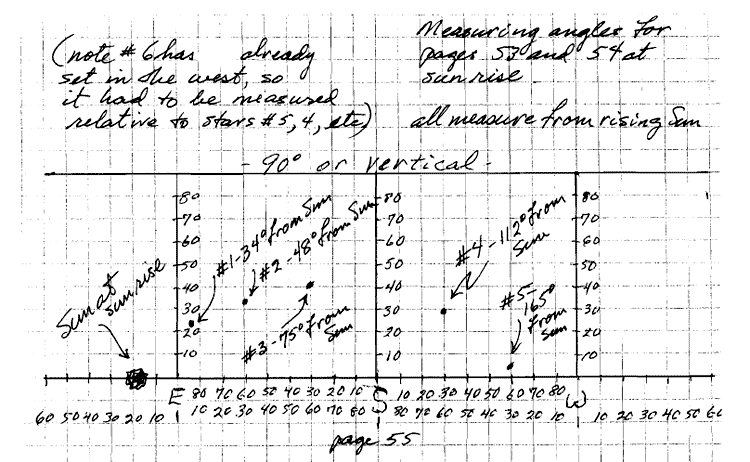 (note #6 has already
set in the west, so
it had to be measured
relative to stars #5, 4, etc)
Measuring angles for
pages 53 and 54 at
sunrise
all measure from rising Sun
- 90° or vertical -
80
70
60
50
40
30
20
10
80
70
60
50
40
30
20
10
80
70
60
50
40
30
20
10
Sun at
sunrise
#1-34° from Sun
#2-48° from Sun
#3-75° from
Sun
#4-112° from
Sun
#5-
165°
from
Sun
E 80 70 60 50 40 30 20 10 S 10 20 30 40 50 60 70 80 W
60 50 40 30 20 10 10 20 30 40 50 60 70 80 80 70 60 50 40 30 20 10 10 20 30 40 50 60
page 55